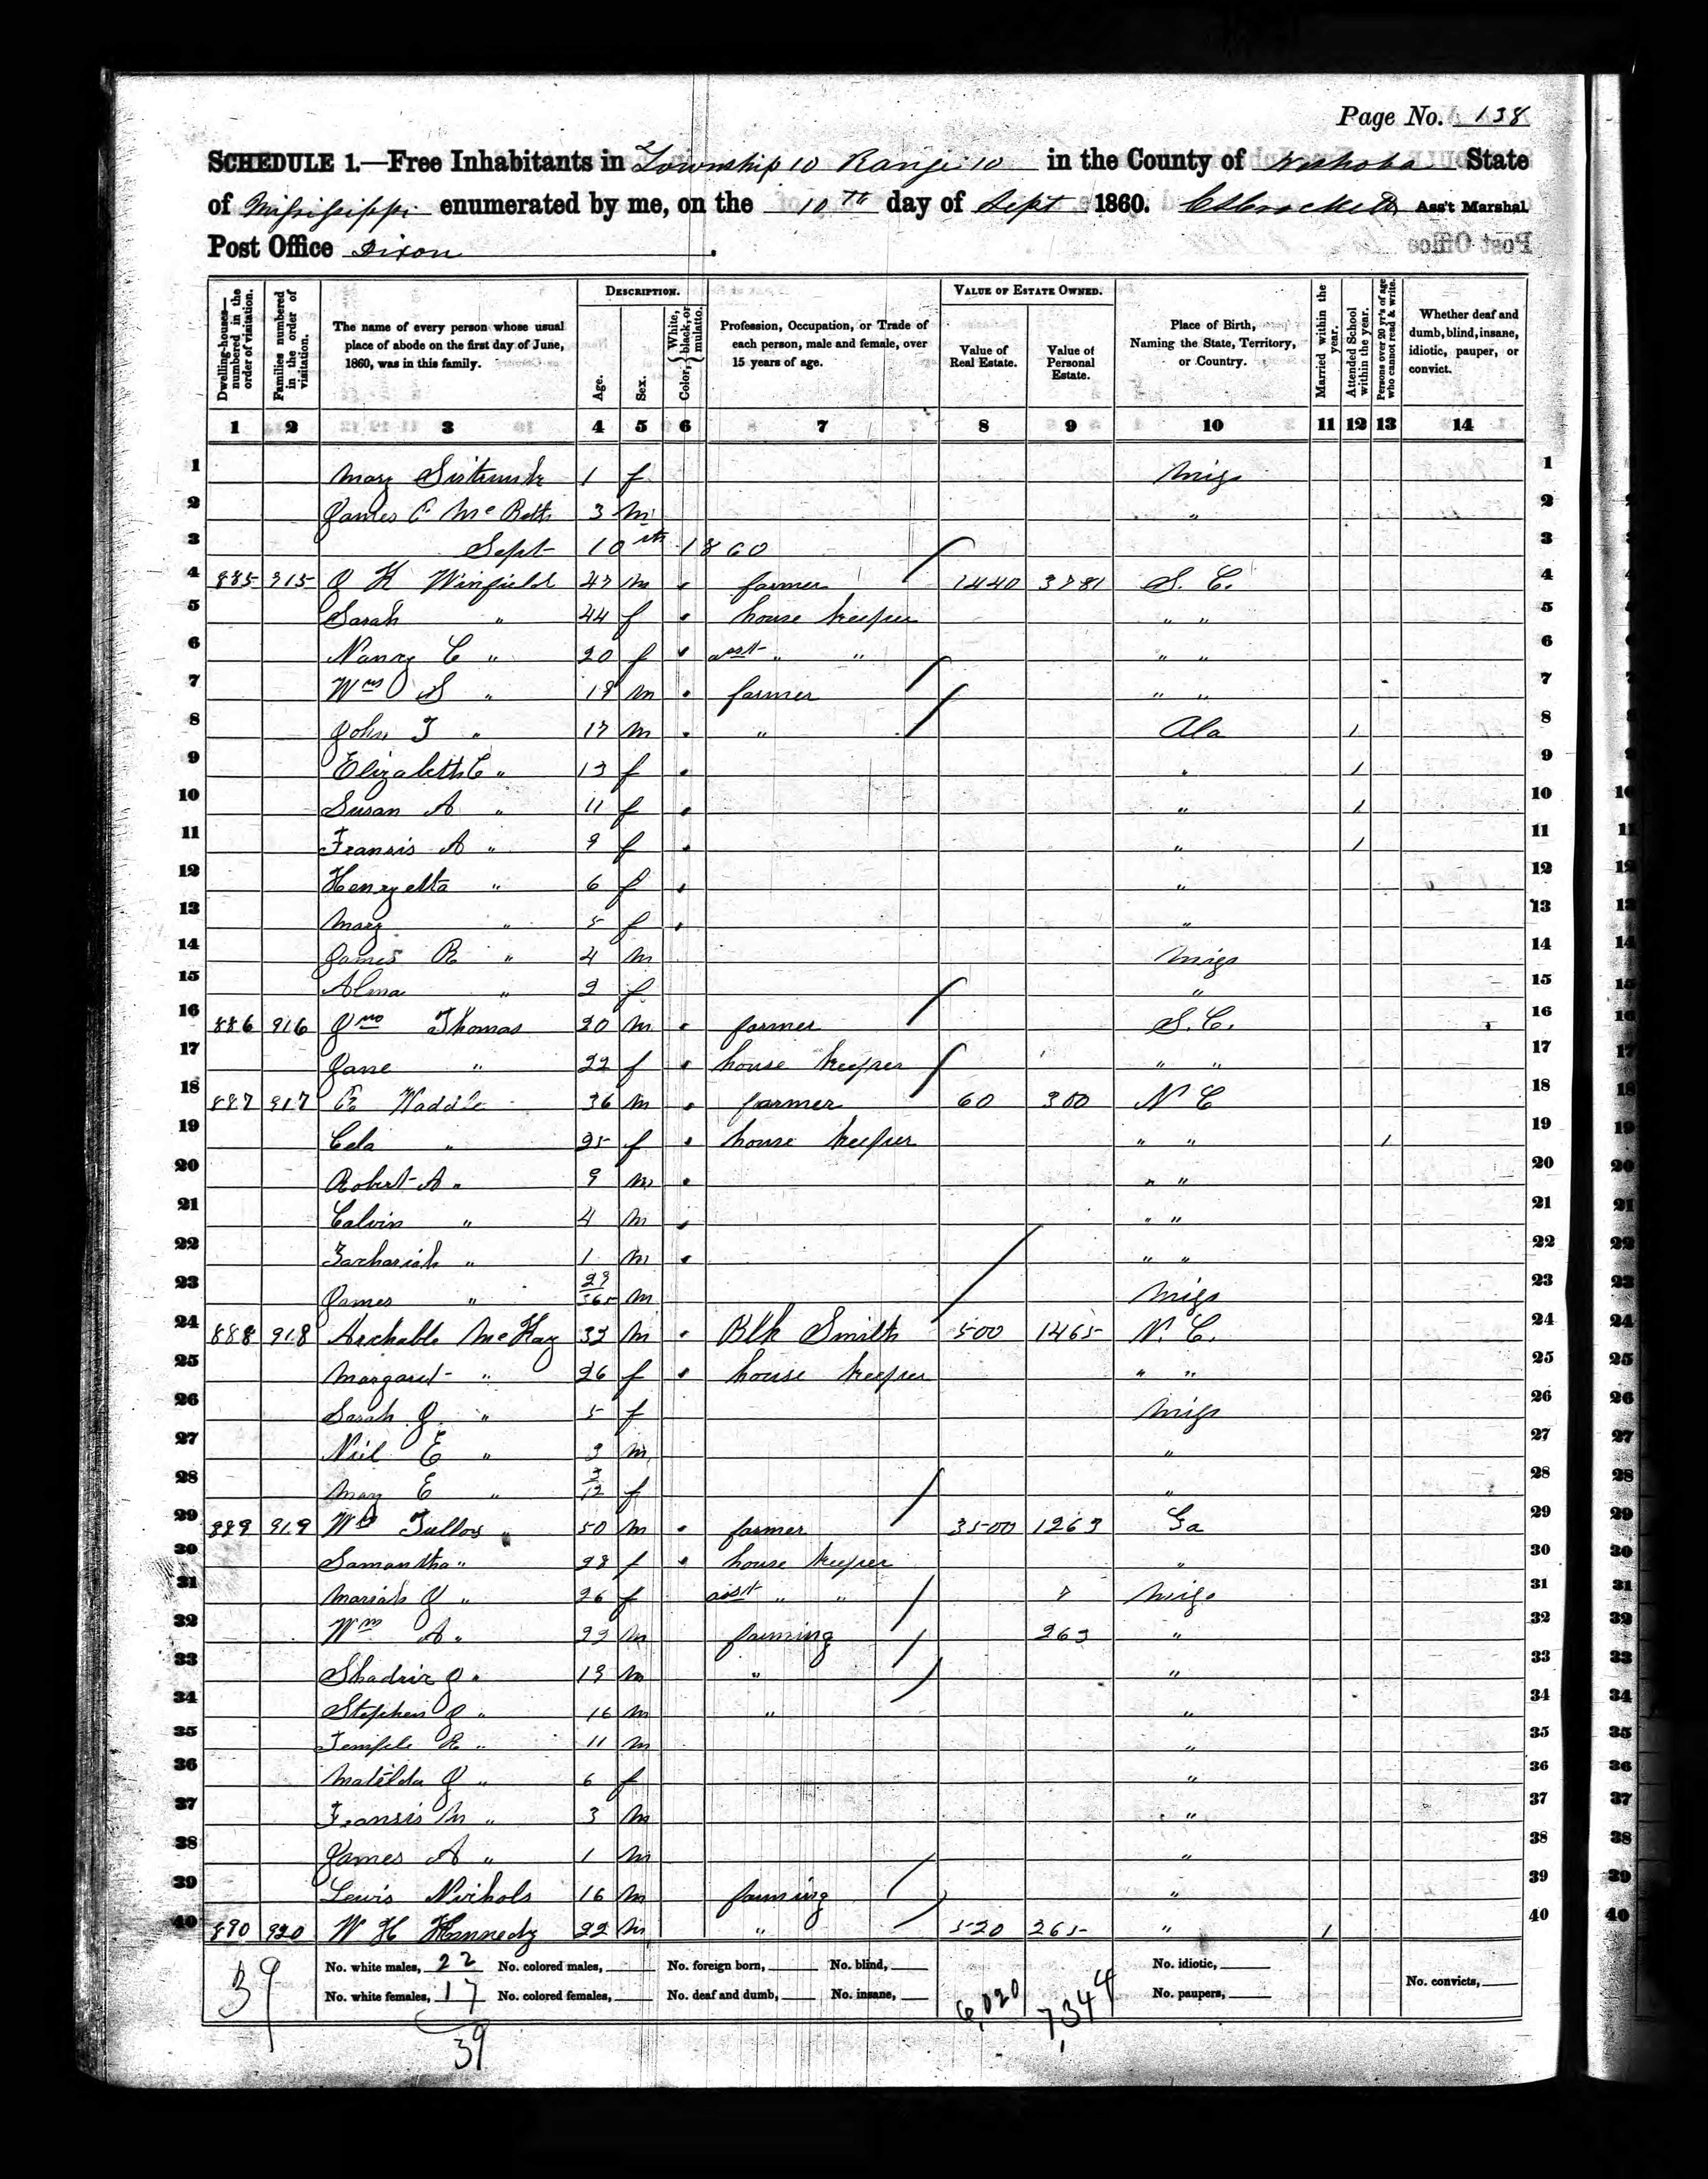 Page No. 138
SCHEDULE 1.—Free Inhabitants in Township 10 Range 10 in the County of Neshoba State
of Mississippi enumerated by me, on the 10th day of Sept 1860. Ass't Marshal
Post Office Dixon.
Dwelling-houses—numbered in the order of visitation.
Families numbered in the order of visitation.
The name of every person whose usual place of abode on the first day of June, 1860, was in this family.
DESCRIPTION.
Age.
Sex.
Color, { White, black, or mulatto.
Profession, Occupation, or Trade of each person, male and female, over 15 years of age.
VALUE OF ESTATE OWNED.
Value of Real Estate.
Value of Personal Estate.
Place of Birth, Naming the State, Territory, or Country.
Married within the year.
Attended School within the year.
Persons over 20 yr's of age who cannot read & write.
Whether deaf and dumb, blind, insane, idiotic, pauper, or convict.
1 2 3 4 5 6 7 8 9 10 11 12 13 14
1 Mary 1 f Miss 1
2 James C McBeth 3 m " 2
3 Sept 10th 1860 3
4 885 915 J H Winfield 47 m farmer 1440 3781 S. C. 4
5 Sarah " 44 f house keeper " " 5
6 Nancy C " 20 f asst " " " " 6
7 Wm S " 18 m farmer " " 7
8 John T " 17 m " Ala 1 8
9 Elizabeth C " 13 f " 1 9
10 Susan A " 11 f " 1 10
11 Fransis A " 9 f " 1 11
12 Henryetta " 6 f " 12
13 Mary " 5 f " 13
14 James R " 4 m Miss 14
15 Alma " 2 f " 15
16 886 916 Jno Thomas 20 m farmer S. C. 16
17 Jane " 22 f house keeper " " 17
18 887 917 E Waddle 36 m farmer 60 300 N C 18
19 Cela " 25 f house keeper " " 1 19
20 Robert A " 9 m " " 20
21 Calvin " 4 m " " 21
22 Zachariah " 1 m " " 22
23 James " 29/365 m Miss 23
24 888 918 Archable McKay 33 m Blk Smith 500 1465 N. C. 24
25 Margaret " 26 f house keeper " " 25
26 Sarah J. " 5 f Miss 26
27 Niel E " 3 m " 27
28 Mary E " 3/12 f " 28
29 889 919 Wm Tullos " 50 m farmer 3500 1263 Ga 29
30 Samantha " 28 f house keeper " 30
31 Mariah J " 26 f asst " " 7 Miss 31
32 Wm A " 22 m farming 263 " 32
33 Shadric J " 19 m " " 33
34 Stephen J " 16 m " " 34
35 Temple R " 11 m " 35
36 Matilda J " 6 f " 36
37 Fransis M " 3 m " 37
38 James A " 1 m " 38
39 Lewis Nichols 16 m farming " 39
40 890 920 W H Kennedy 22 m " 520 265 " 1 40
39 No. white males, 22 No. colored males, No. foreign born, No. blind, No. idiotic,
No. white females, 17 No. colored females, No. deaf and dumb, No. insane, 6,020 7,344 No. paupers, No. convicts,
39